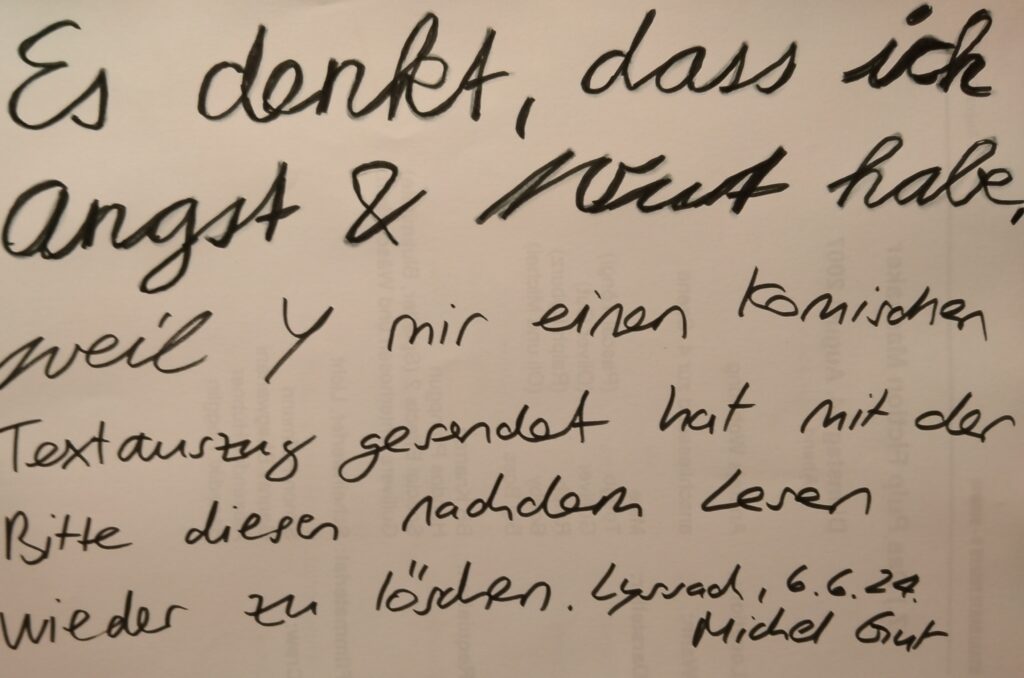 Es denkt, dass ich
Angst & Wut habe,
weil Y mir einen komischen
Textauszug gesendet hat mit der
Bitte diesen nachdem Lesen
wieder zu löschen. Lyssach, 6.6.24.
Michel Gut